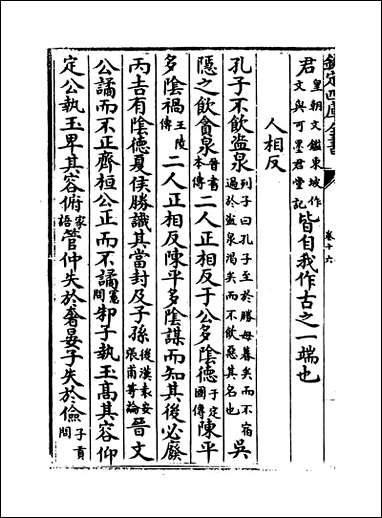 欽定四庫全書
卷十六
君皇朝文鑑東坡作文與可墨君堂記皆自我作古之一端也
人相反
孔子不飲盜泉列子曰孔子至於勝母暮矣而不宿過於盜泉渴矣而不飲惡其名也吳
隱之飲貪泉晉書本傳二人正相反于公多陰德于定國傳陳平
多陰禍王陵傳二人正相反陳平多陰謀而知其後必廢
丙吉有陰德夏侯勝識其當封及子孫後漢袁安張甫等論晉文
公譎而不正齊桓公正而不譎憲問邾子執玉髙其容仰
定公執玉卑其容俯家語管仲失於奢晏子失於儉子貢問